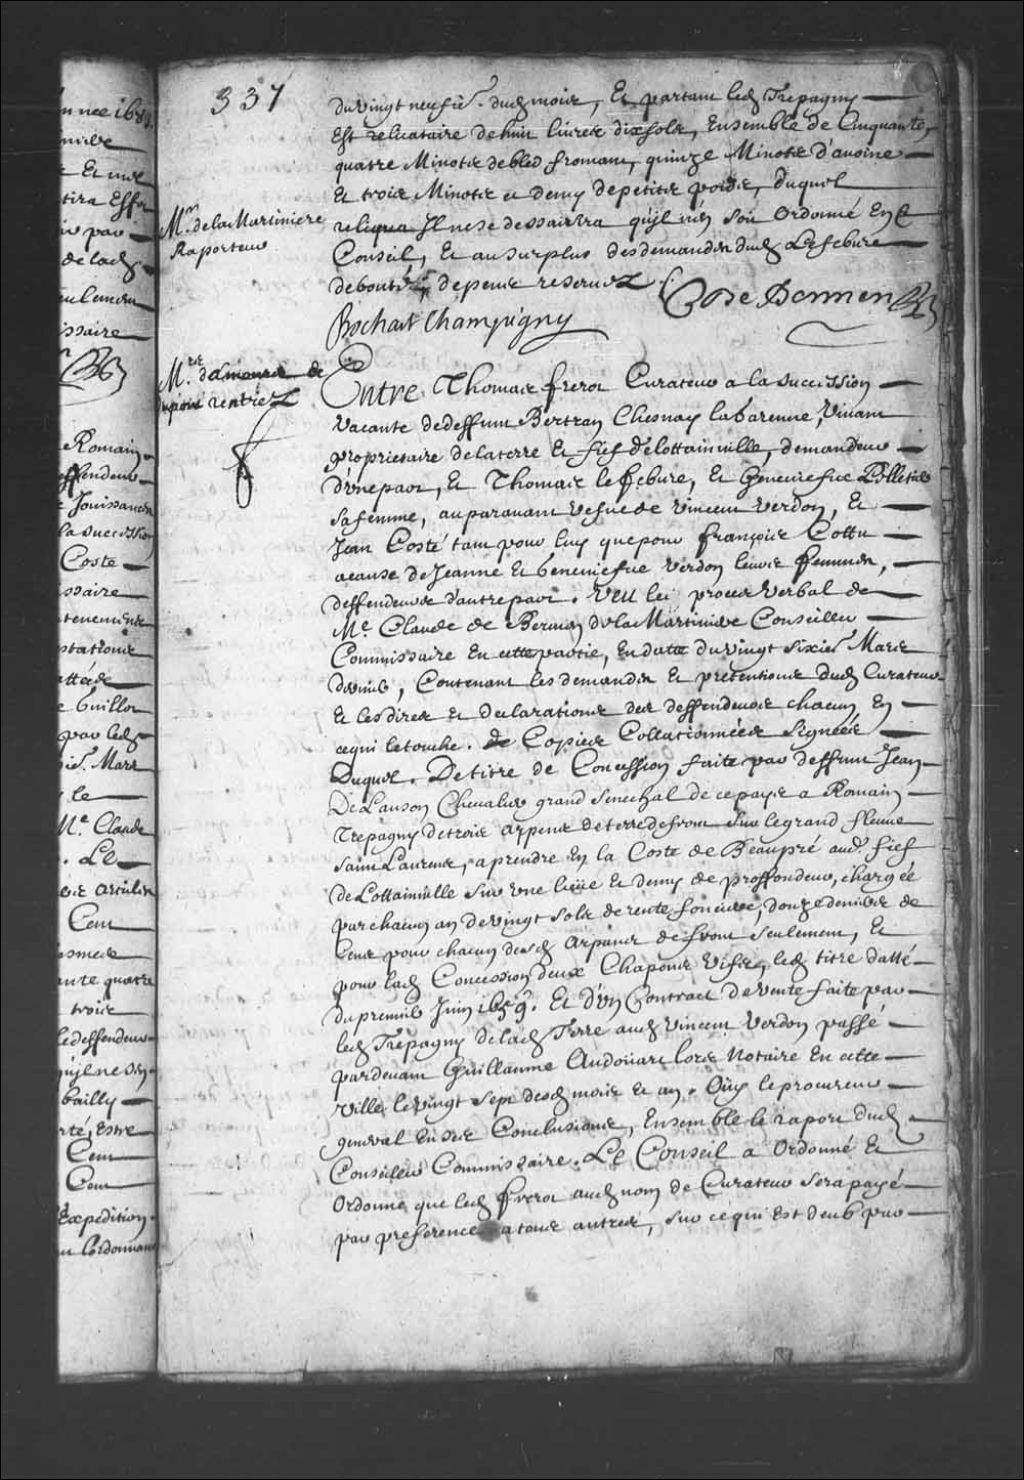 337
du vingt neufie.^ dud moies, Et partant led Trepagny
Est reliquataire de huit livres dix sols, Ensemble de Cinquante
quatre Minots de bled froment, quinze Minots d'avoine
Et trois Minots et demy de petits poids, duquel
reliqua Il ne se dessaisira qu'il n'en soit Ordonné En ce
Conseil, Et au surplus des demandes dud Lefebure
debouté, depens reservez
M.^r de la Martiniere
Raporteur
De Bermen
Bochart Champigny
M.^rs damours de
pour rentrez
Entre Thomas frerot Curateur a la succession
Vacante de deffunt Bertran Chesnay la Garenne, Vivant
proprietaire de la terre Et fief de lottainville, demandeur
d'une part, Et Thomas le febure, Et Geneviefve Pelletier
sa femme, auparavant vefve de vincent verdon, Et
Jean Costé tant pour luy que pour françois Cottu
a cause de Jeanne Et Geneviefve verdon leurs femmes,
deffendeurs d'autre part. Veu le procez verbal de
M.^e Claude de Bermen de la Martiniere Conseiller
Commissaire En cette partie, En date du vingt sixie.^ Mars
dernier, Contenant les demandes Et pretentions dud Curateur
Et les dires et declarations des deffendeurs chacun En
ce qui le touche. de Copies Collationnées Signées
Duquet. De titre de Concession faite par deffunt Jean
De Lauson Chevalier grand Senechal de ce pays a Romain
Trepagny de trois arpens de terre de front sur le grand fleuve
saint Laurens, a prendre En la Coste de Beaupré aud. fief
De Lottainville sur une lieüe Et demy de proffondeur, chargée
par chacun an de vingt sols de rente fonciere, douze deniers de
Cens pour chacun desd arpens de front seulement, Et
pour lad Concession deux Chapons vifs, led titre datté
du premier Juin 1659. Et d'un Contract de vente faite par
led Trepagny de lad Terre aud vincent verdon passé
pardevant Guillaume Audoüart lors Notaire En cette
ville le vingt sept desd mois et an. Oüy le procureur
general En ses Conclusions, Ensemble le raport dud
Conseiller Commissaire. Le Conseil a Ordonné Et
Ordonne que led frerot aud nom de Curateur sera payé
par preference a tous autres, sur ce qui est deub par